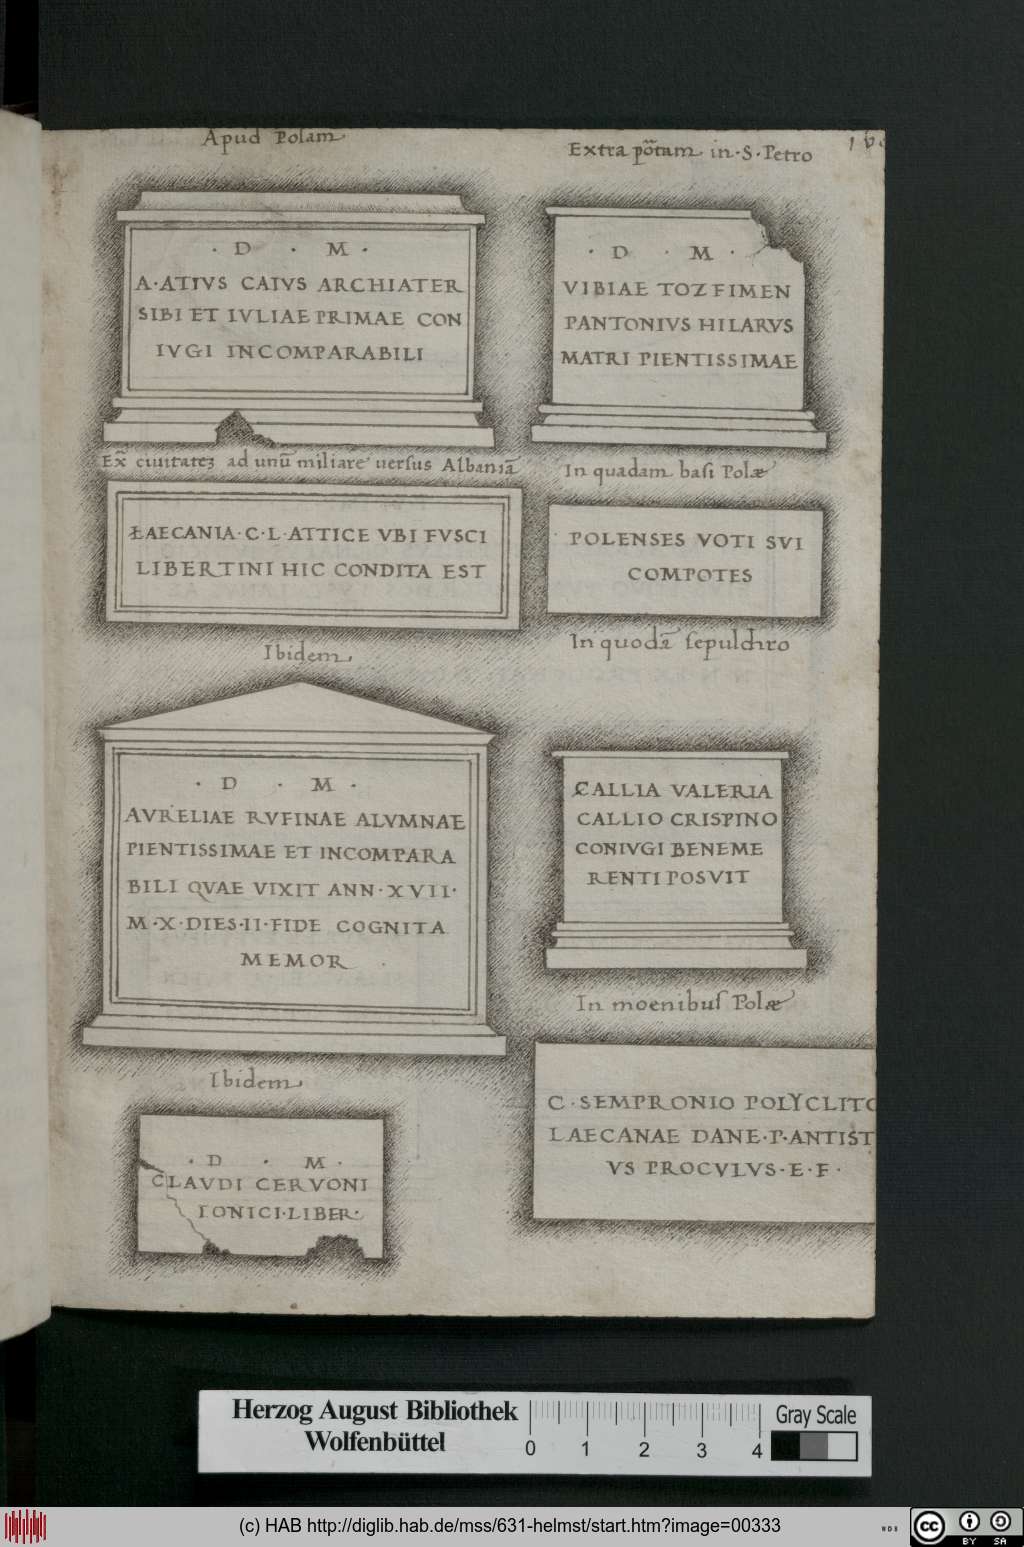 Apud Polam
· D · M ·
A·ATIVS CAIVS ARCHIATER
SIBI ET IVLIAE PRIMAE CON
IVGI INCOMPARABILI
Ex̃ ciuitatez ad unũ miliare uersus Albaniã
ŁAECANIA·C·L·ATTICE VBI FVSCI
LIBERTINI HIC CONDITA EST
Ibidem
· D · M ·
AVRELIAE RVFINAE ALVMNAE
PIENTISSIMAE ET INCOMPARA
BILI QVAE VIXIT ANN·XVII·
M·X·DIES·II·FIDE COGNITA
MEMOR
Ibidem
· D · M ·
CLAVDI CERVONI
IONICI·LIBER·
Extra põtam in·S·Petro
· D · M ·
VIBIAE TOZFIMEN
PANTONIVS HILARVS
MATRI PIENTISSIMAE
In quadam basi Polæ
POLENSES VOTI SVI
COMPOTES
In quodã sepulchro
CALLIA VALERIA
CALLIO CRISPINO
CONIVGI BENEME
RENTI POSVIT
In moenibus Polæ
C·SEMPRONIO POLYCLITO
LAECANAE DANE·P·ANTIST
VS PROCVLVS·E·F·
Herzog August Bibliothek
Wolfenbüttel
0 1 2 3 4
Gray Scale
(c) HAB http://diglib.hab.de/mss/631-helmst/start.htm?image=00333
WDB
cc BY SA